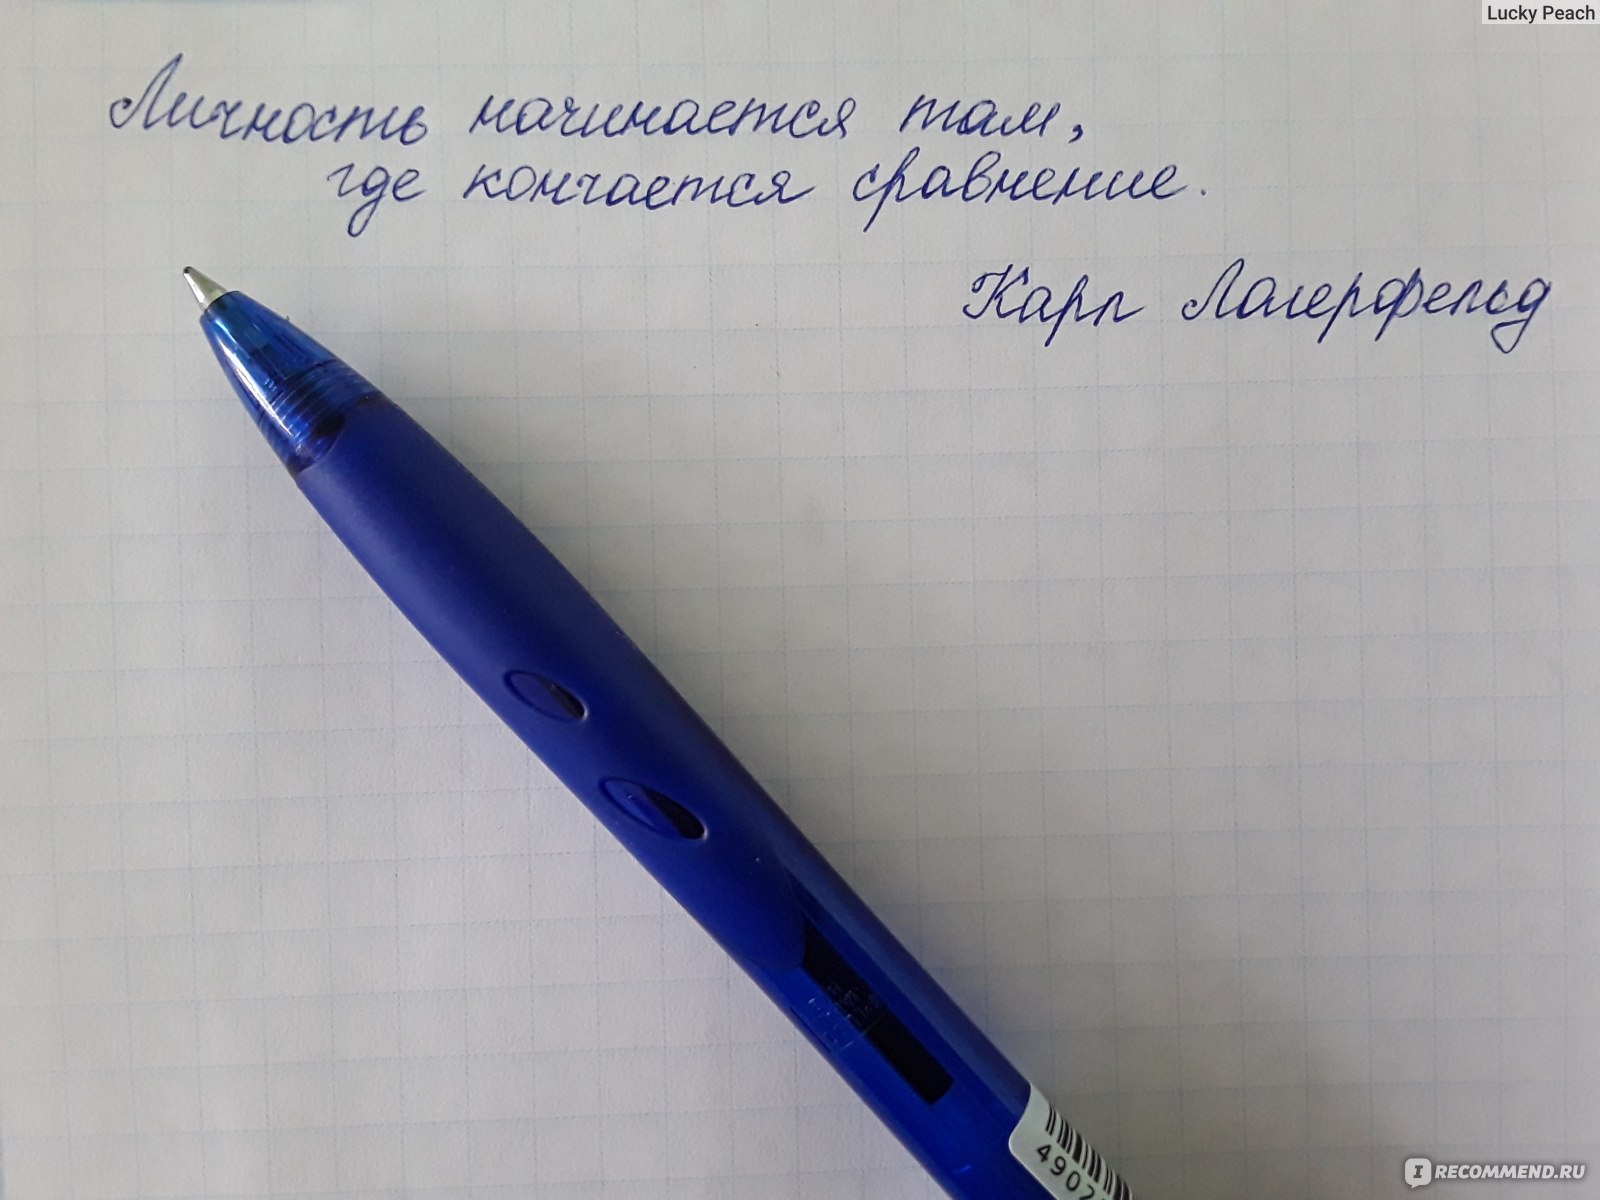 Lucky Peach
Личность начинается там,
где кончается сравнение.
Карл Лагерфельд
4902
IRECOMMEND.RU